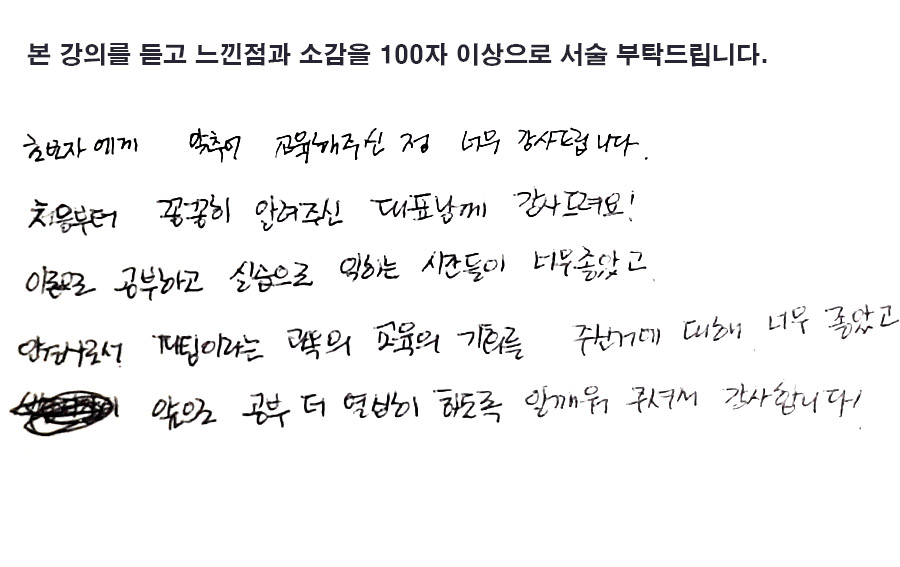 본 강의를 듣고 느낀점과 소감을 100자 이상으로 서술 부탁드립니다.
초보자에게 맞추어 교육해주신 점 너무 감사드립니다.
처음부터 꼼꼼히 알려주신 대표님께 감사드려요!
이론으로 공부하고 실습으로 익히는 시간들이 너무좋았고
안경사로서 피팅이라는 과목의 교육의 기회를 주신거에 대해 너무 좋았고
앞으로 공부 더 열심히 하도록 일깨워 주셔서 감사합니다!